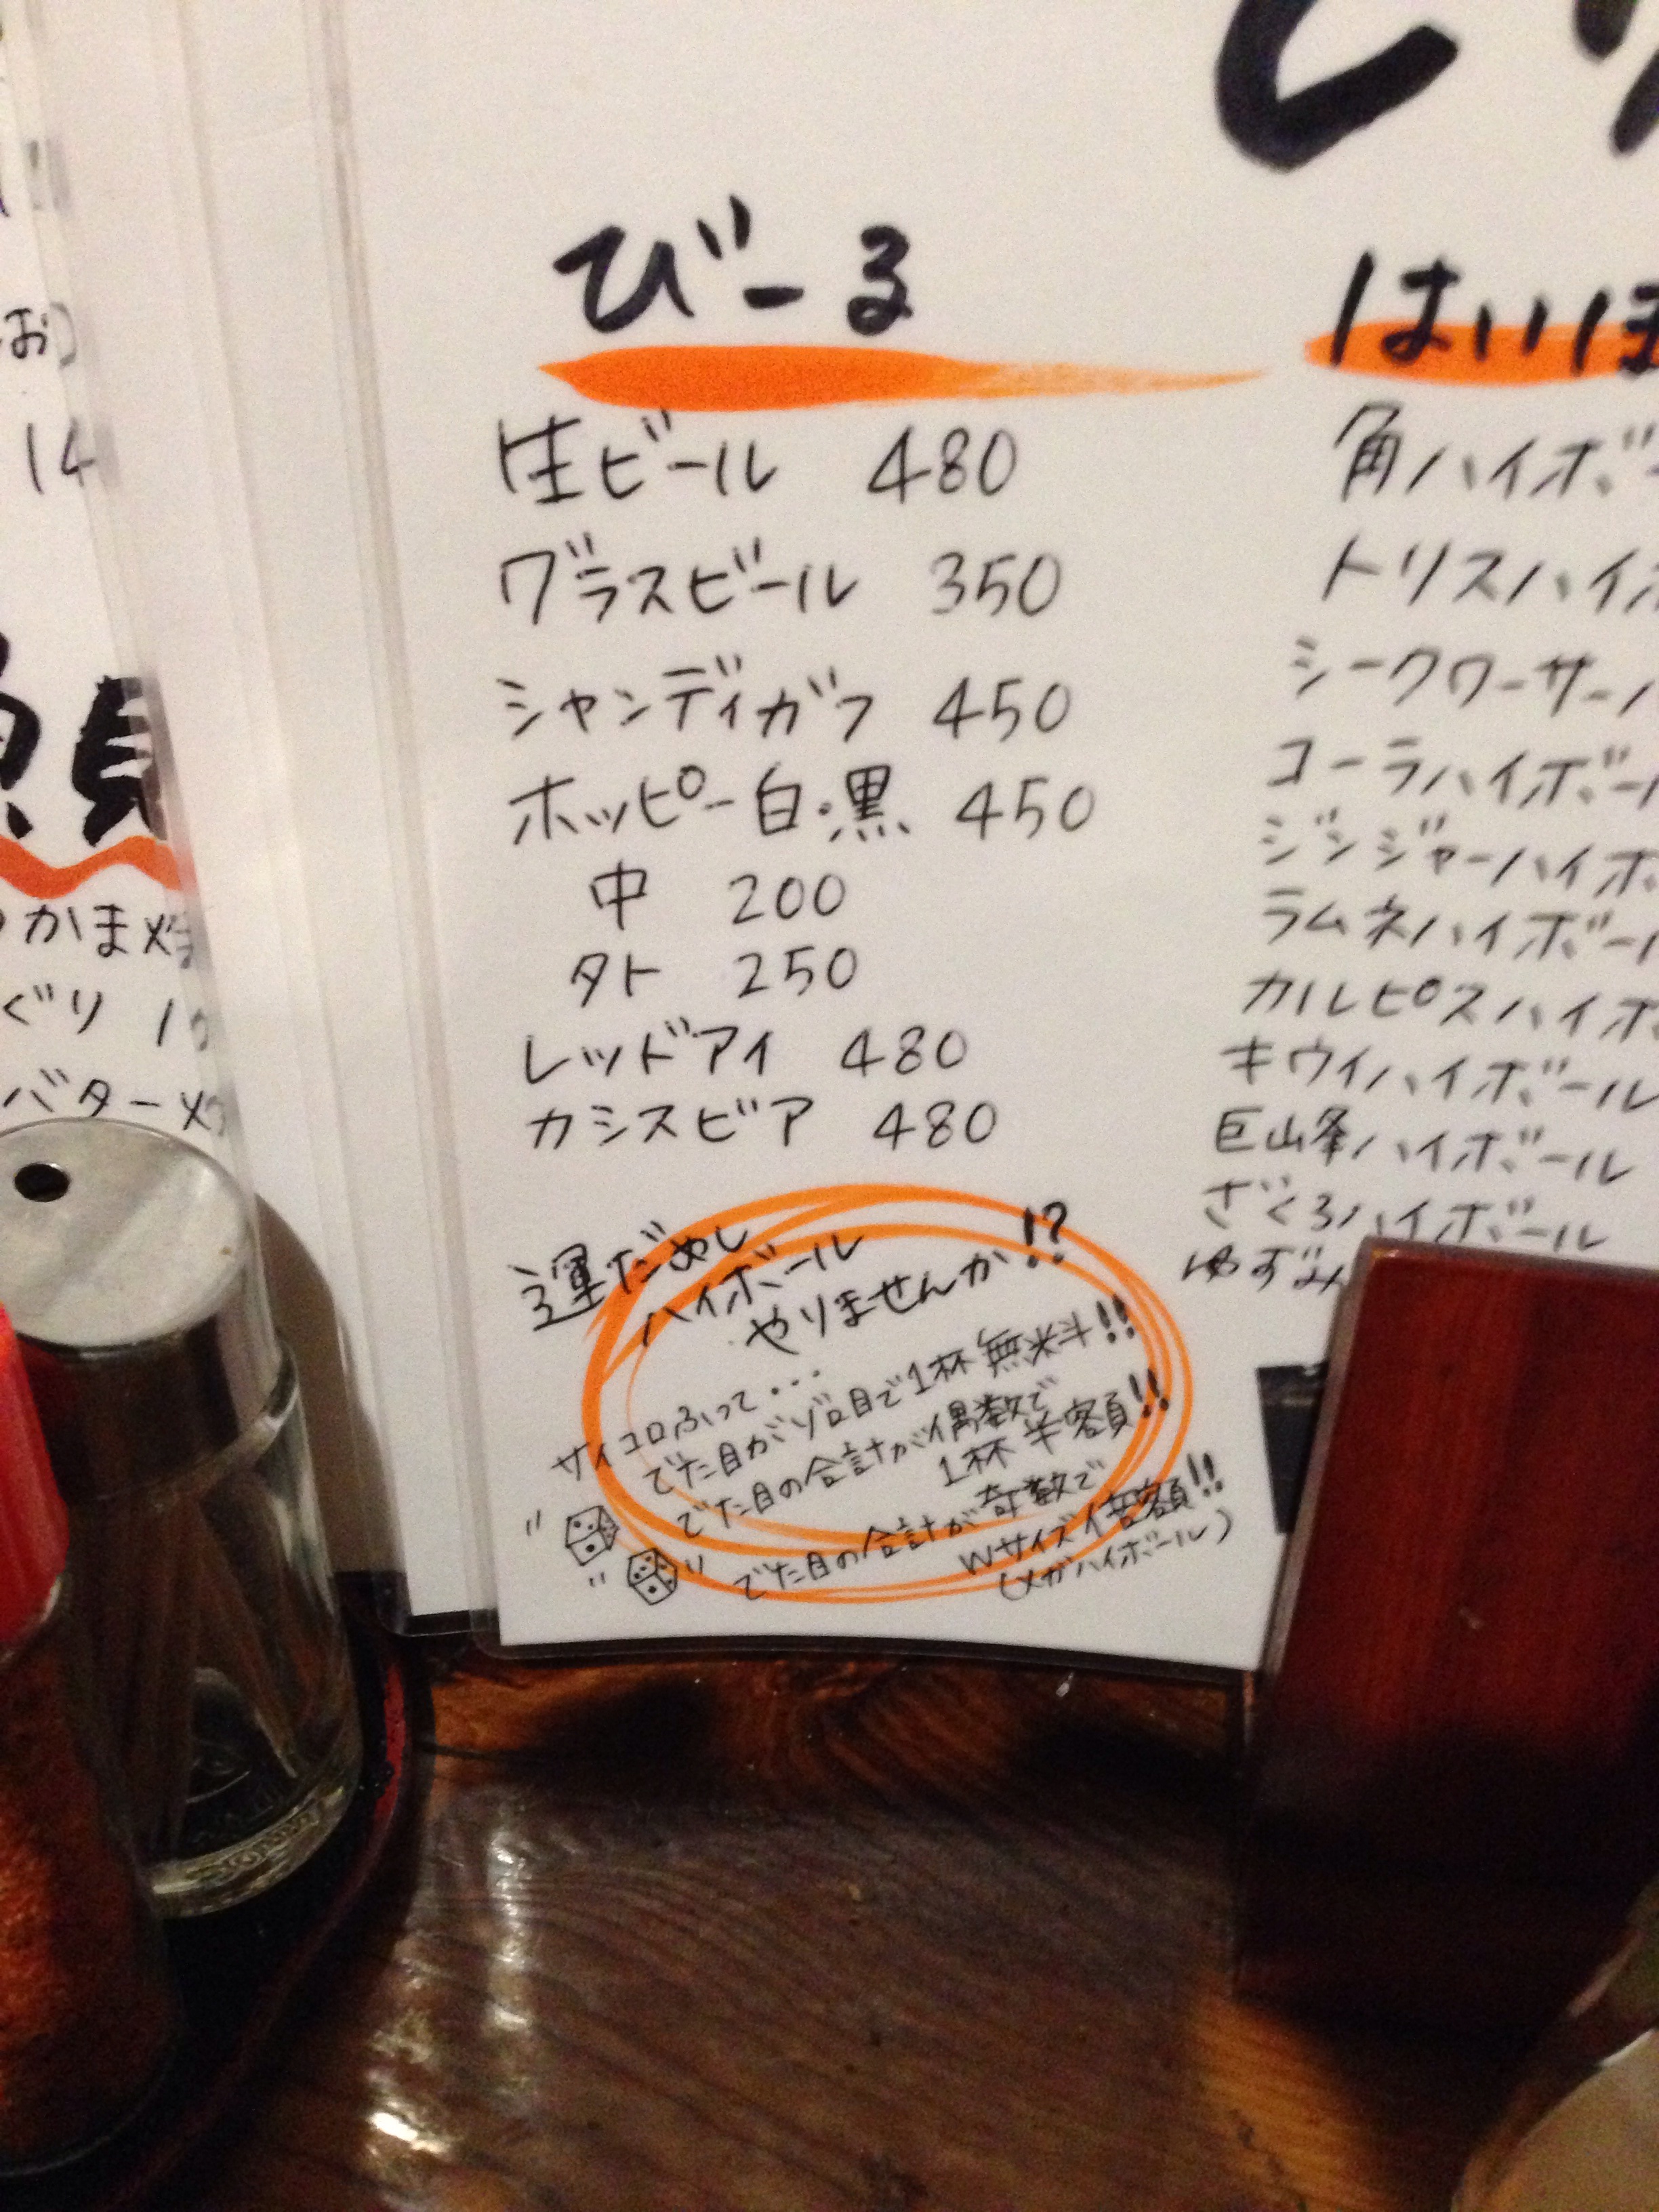 びーる
生ビール 480
グラスビール 350
シャンディガフ 450
ホッピー白・黒 450
中 200
外 250
レッドアイ 480
カシスビア 480
運だめし
ハイボール
やりませんか!?
サイコロふって・・・
でた目がゾロ目で1杯無料!!
でた目の合計が偶数で
1杯半額!!
でた目の合計が奇数で
Wサイズ倍額!!
(メガハイボール)
はいぼ
角ハイボー
トリスハイ
シークワーサー
コーラハイボール
ジンジャーハイボ
ラムネハイボール
カルピスハイボ
キウイハイボール
巨峰ハイボール
ざくろハイボール
ゆずみ
お)
14
かま焼
ぐり
バター